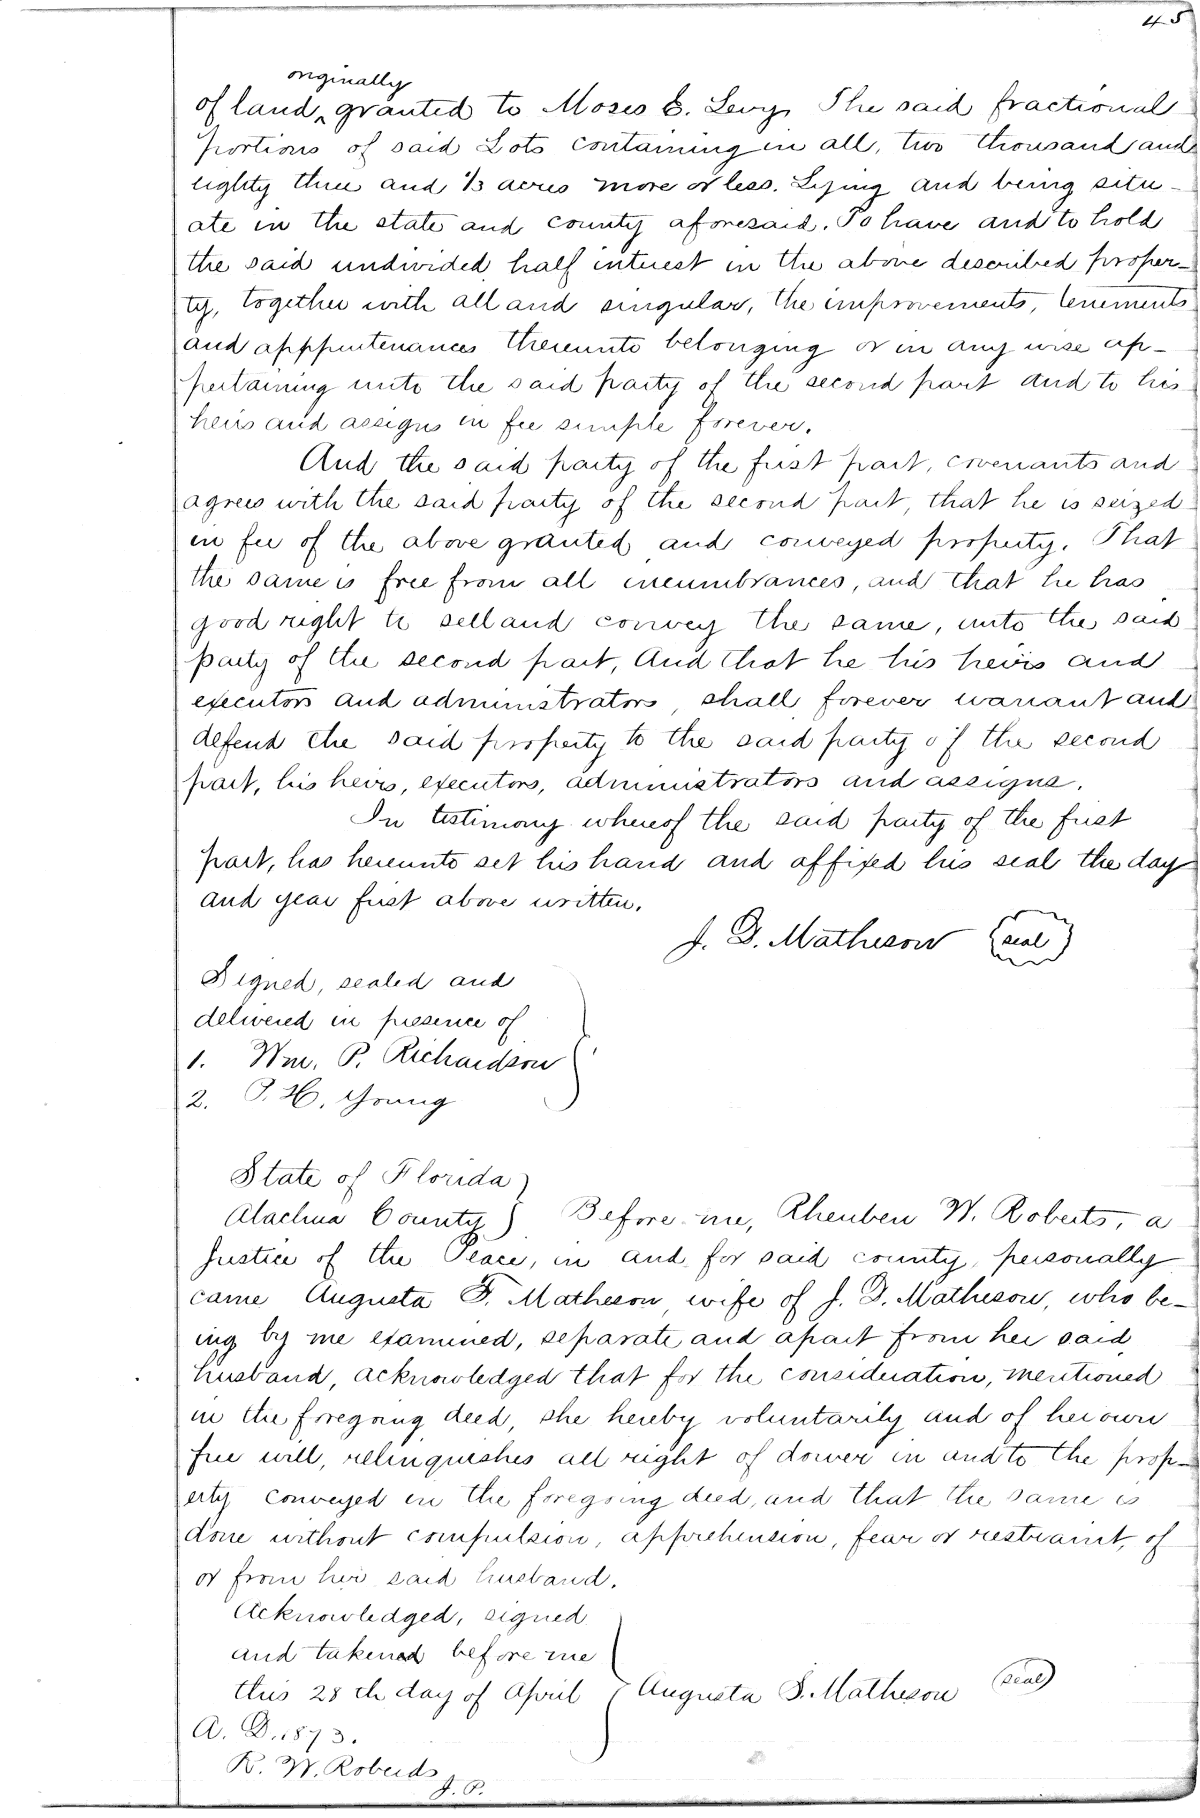 45
originally
of land ^ granted to Moses E. Levy, The said fractional
portions of said Lots containing in all, two thousand and
eighty three and 1/3 acres more or less. Lying and being situ-
ate in the state and county aforesaid. To have and to hold
the said undivided half interest in the above described proper-
ty, together with all and singular, the improvements, tenements
and apppurtenances thereunto belonging or in any wise ap-
pertaining unto the said party of the second part and to his
heirs and assigns in fee simple forever.
And the said party of the first part, covenants and
agrees with the said party of the second part, that he is seized
in fee of the above granted and conveyed property. That
the same is free from all incumbrances, and that he has
good right to sell and convey the same, unto the said
party of the second part, And that he his heirs and
executors and administrators, shall forever warrant and
defend the said property to the said party of the second
part, his heirs, executors, administrators and assigns.
In testimony whereof the said party of the first
part, has hereunto set his hand and affixed his seal the day
and year first above written.
J. D. Matheson (seal)
Signed, sealed and
delivered in presence of
1. Wm. P. Richardson
2. P. H. Young
State of Florida
Alachua County } Before me, Rheuben W. Roberts, a
Justice of the Peace, in and for said county, personally
came Augusta F. Matheson, wife of J. D. Matheson, who be-
ing by me examined, separate and apart from her said
husband, acknowledged that for the consideration, mentioned
in the foregoing deed, she hereby voluntarily and of her own
free will, relinquishes all right of dower in and to the prop-
erty conveyed in the foregoing deed, and that the same is
done without compulsion, apprehension, fear or restraint, of
or from her said husband.
Acknowledged, signed
and taken before me
this 28th day of April } Augusta S. Matheson (seal)
A. D. 1873.
R. W. Roberds
J. P.